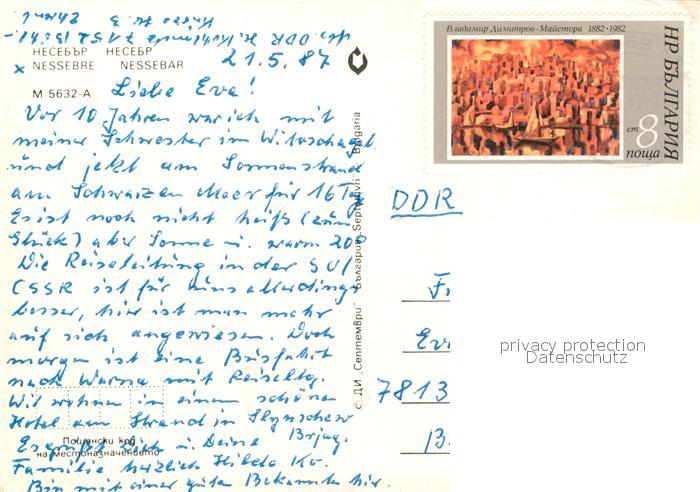 НЕСЕБЪР НЕСЕБР
NESSEBRE NESSEBAR
21.5.87
M 5632-A
Liebe Eva!
Vor 10 Jahren war ich mit
meiner Schwester im
und jetzt am Sonnenstrand
am Schwarzen Meer für 16 Tage
Es ist noch nicht heiß (zum
Glück) aber Sonne u. warm 20°
Die Reiseleitung in der SU/
CSSR ist für uns allerdings
besser, hier ist man mehr
auf sich angewiesen. Doch
morgen ist eine Busfahrt
nach Warna mit Reiseltg.
Wir wohnen in einem schönen
Hotel am Strand in Slynschew
Brjag.
Es grüßt Dich u. Deine
Familie herzlich Hilda Kr.
Bin mit einer guten Bekannten hier.
Пощенски код
на местоназначението
С ДИ „Септември" България Septemvri Bulgaria
Владимир Димитров-Майстора 1882·1982
НР БЪЛГАРИЯ
ст 8
поща
DDR
Ev
7813
B.
privacy protection
Datenschutz